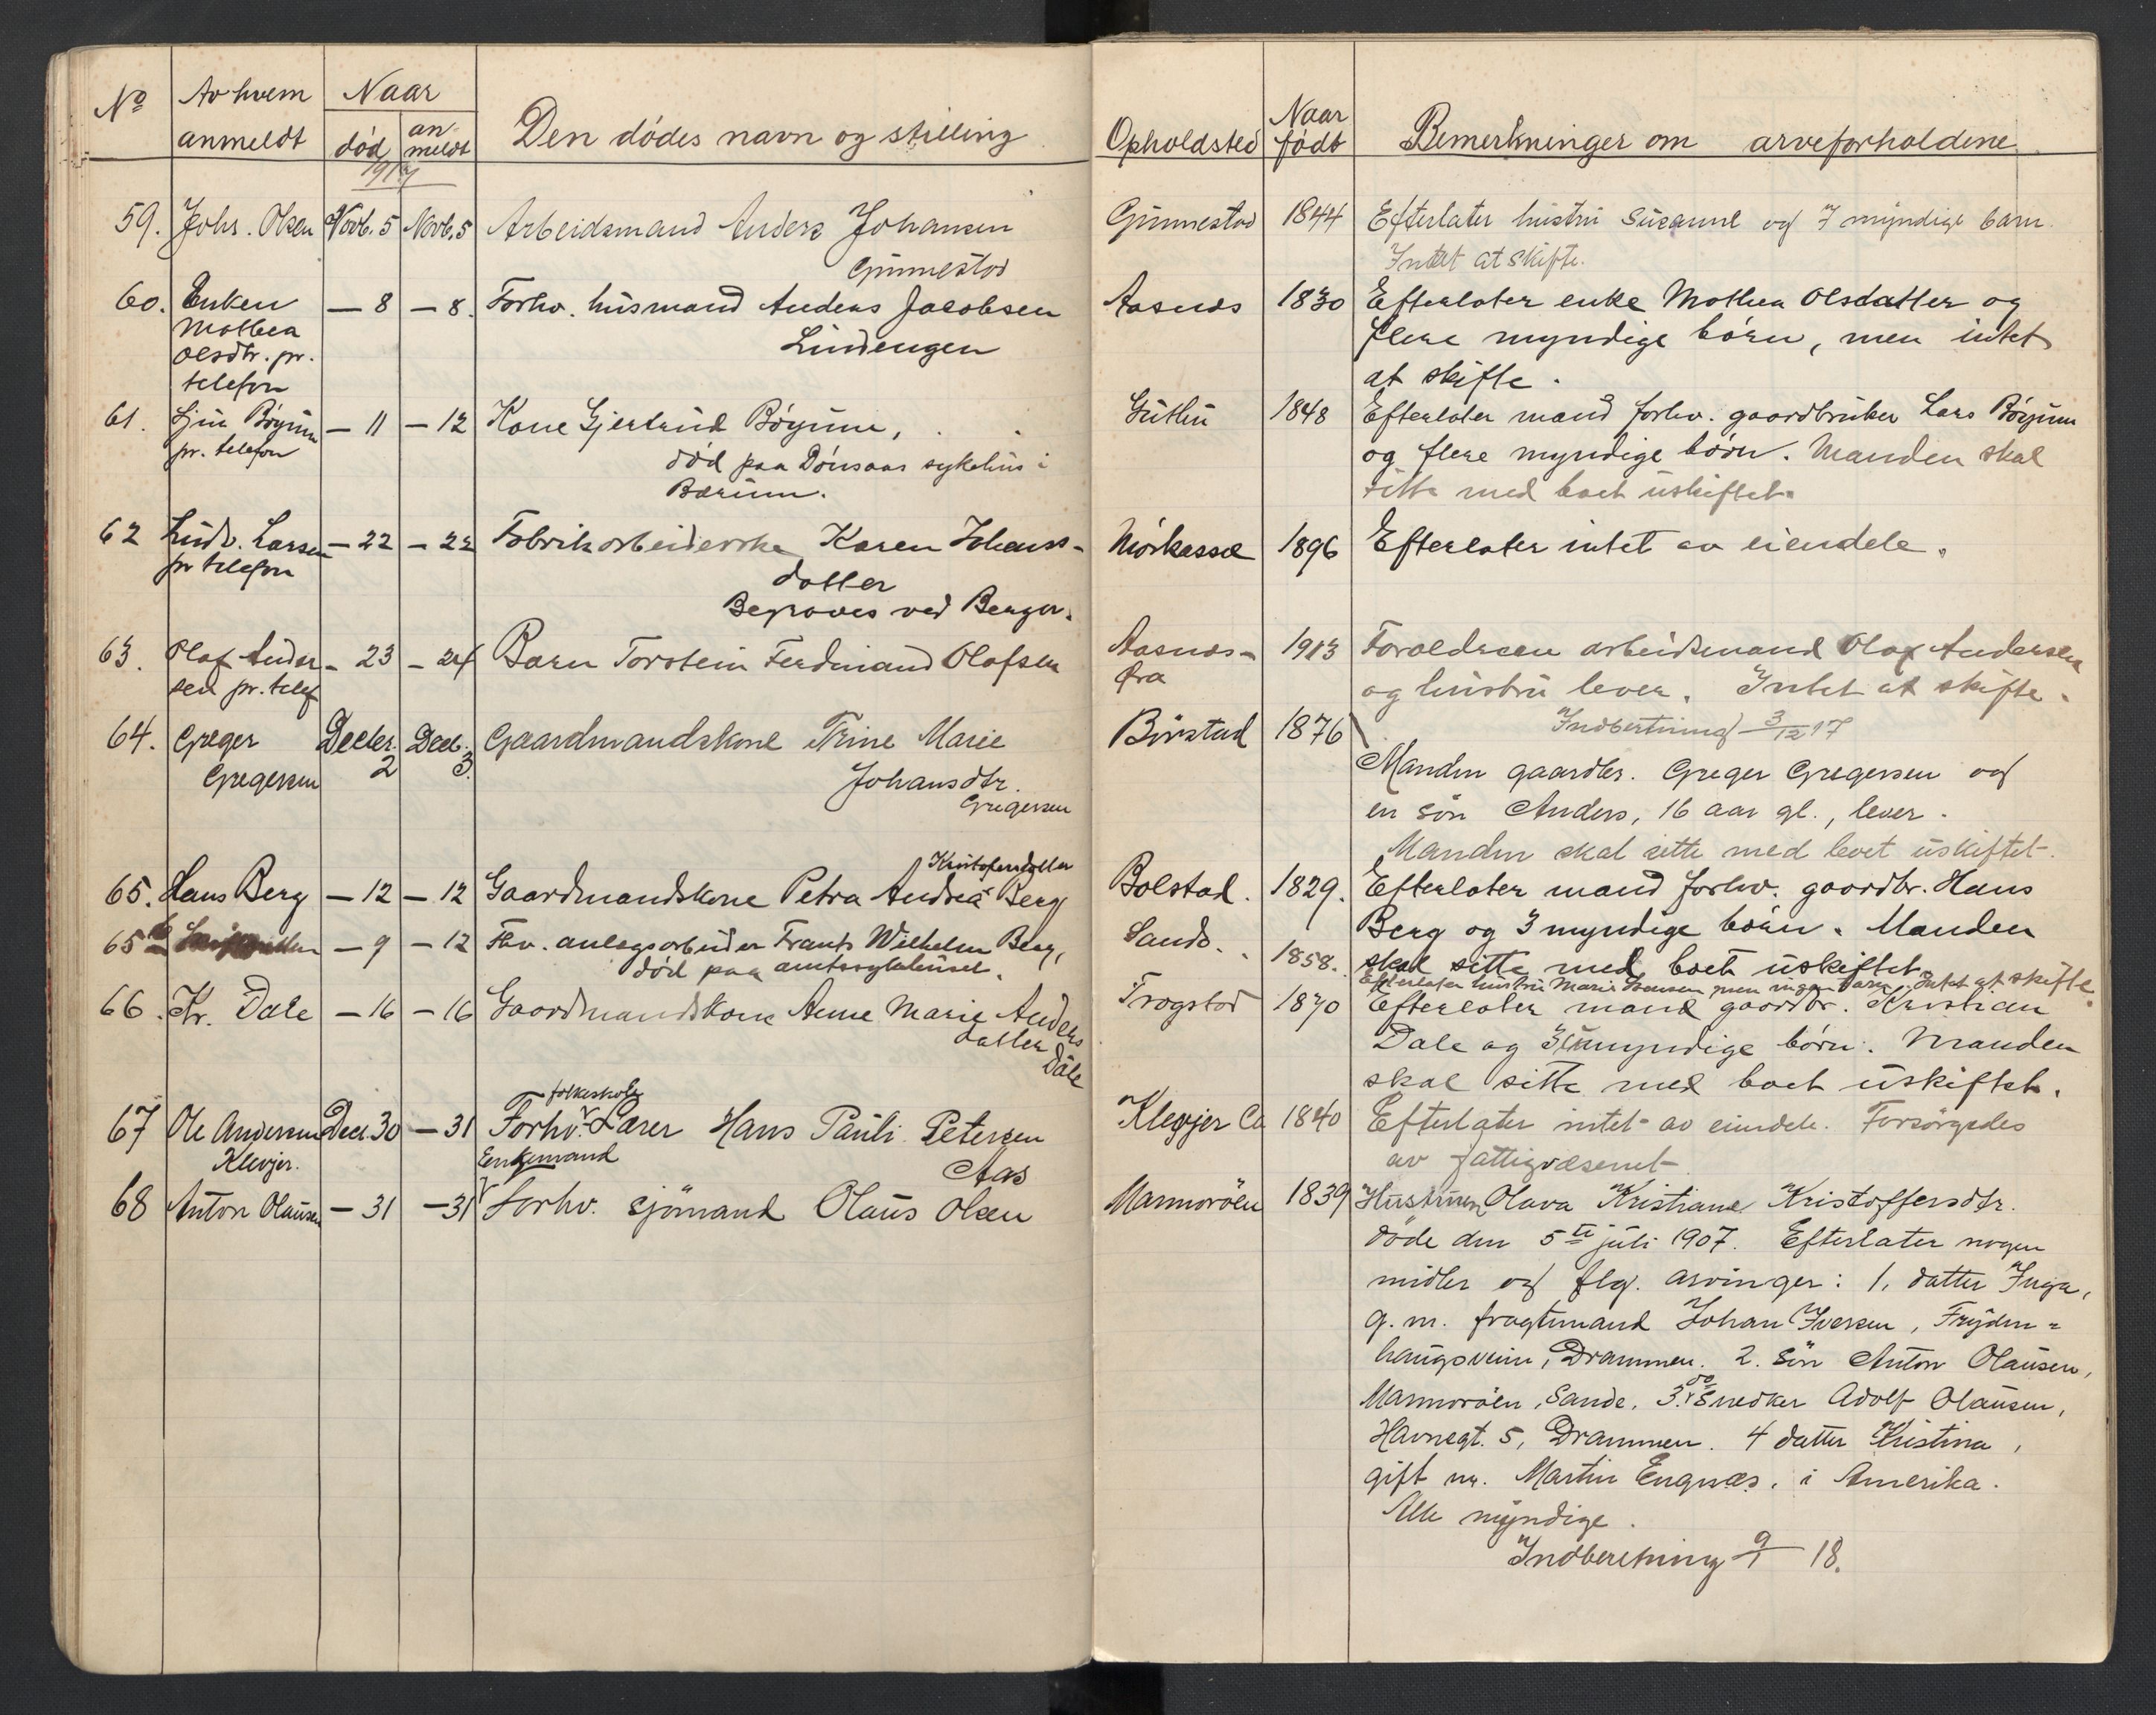 No Av hvem anmeldt Naar død an- meldt Den dødes navn og stilling Opholdsted Naar født Bemerkninger om arveforholdene
1917
59. Johs. Olsen Novb. 5 Novb. 5 Arbeidsmand Anders Johansen Gunnestad 1844 Efterlater hustru Susanne og 7 myndige barn.
Gunnestad Intet at skifte.
60. Enken — 8 — 8. Forhv. husmand Anders Jacobsen Aasnes 1830 Efterlater enke Mathea Olsdatter og
Mathea Lindengen flere myndige börn, men intet
Olsdtr. pr. at skifte.
telefon
61. Bøyum — 11 — 12 Kone Gjertrud Bøyum, 1848 Efterlater mand forhv. gaardbruker Lars Bøyum
pr. telefon død paa sykehus i og flere myndige börn. Manden skal
Bærum. sitte med boet uskiftet.
62 Ludv. Larsen — 22 — 22 Fabrikarbeiderske Karen Johans- 1896 Efterlater intet av eiendele.
pr telefon datter
Begraves ved Berger.
63. Olaf Ander- — 23 — 24 Barn Torstein Ferdinand Olafsen Aasnes- 1913 Forældreen arbeidsmand Olaf Andersen
sen pr. telef øra og hustru lever. Intet at skifte.
64. Greger Decbr. Decb. Gaardmandskone Trine Marie 1876 Indberetning 3/12 17
Gregersen 2 3. Johansdtr. Manden gaardbr. Greger Gregersen og
Gregersen en sön Anders, 16 aar gl., lever.
Manden skal sitte med boet uskiftet.
Kristofersdatter
65. Hans Berg — 12 — 12 Gaardmandskone Petra Andrea Berg Bolstad. 1829. Efterlater mand forhv. gaardbr. Hans
Berg og 3 myndige börn. Manden
65 b — 9 — 12 Fhv. anlegsarbeider Frants Wilhelm Berg, Sande. 1858. skal sitte med boet uskiftet.
død paa amtssykehuset. Efterlater hustru Marie men ingen barn. Intet at skifte.
66. Kr. Dale — 16 — 16 Gaardmandskone Anne Marie Anders Trogstad 1870 Efterlater mand gaardbr. Kristian
datter Dale og 3 umyndige børn. Manden
Dale skal sitte med boet uskiftet.
folkeskole
67 Ole Andersen Decr. 30 — 31 Forhv. Lærer Hans Pauli Petersen Klevjer Ca 1840 Efterlater intet av eiendele. Forsörgedes
Klevjer. Enkemand Aas av fattigvæsenet
68 Anton Olausen — 31 — 31 Forhv. sjömand Olaus Olsen 1839 Hustruen Olava Kristiane Kristoffersdtr.
døde den 5te juli 1907. Efterlater nogen
midler og flg. arvinger: 1. datter Inga,
g. m. fragtmand Johan Iversen, Fryden-
haugsveien, Drammen. 2. sön Anton Olausen,
Sande. 3. do Snedker Adolf Olausen,
Havnegt. 5, Drammen. 4 datter Kristina,
gift m. Martin Engnæs, i Amerika.
Alle myndige.
Indberetning 9/1 18.